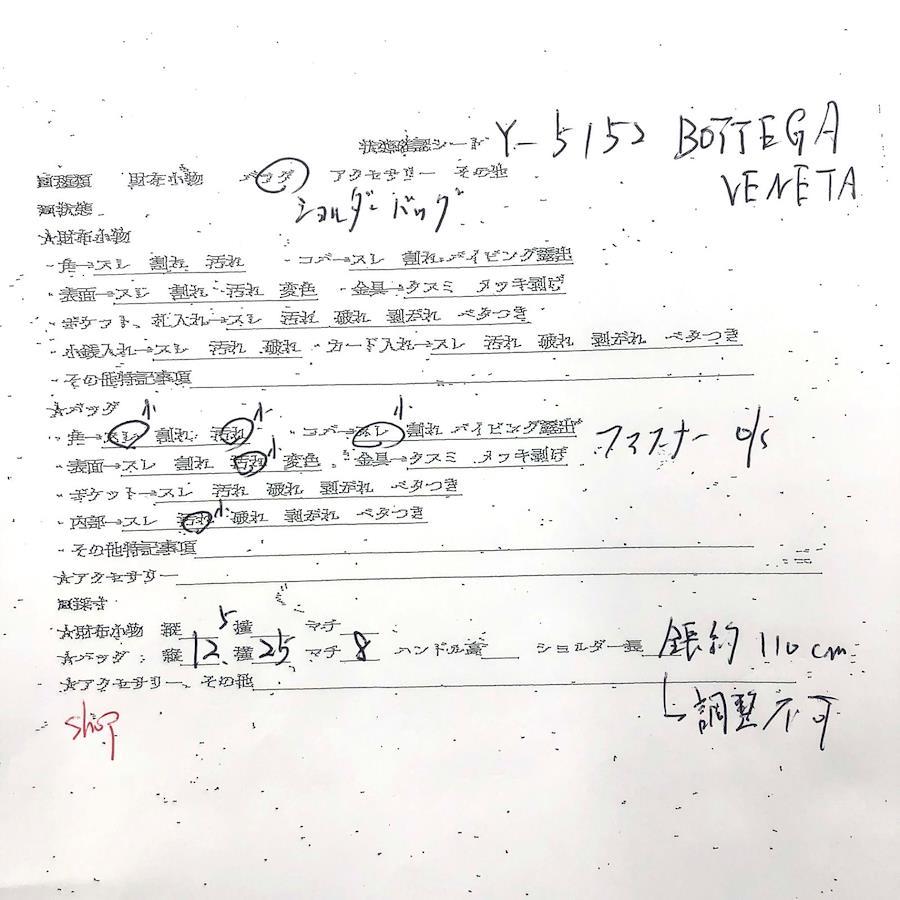 状態確認シート Y-5152 BOTTEGA VENETA
□種類 財布小物 バッグ アクセサリー その他
ショルダーバッグ
□状態
★財布小物
・角→スレ 割れ 汚れ ・コバ→スレ 割れ パイピング露出
・表面→スレ 割れ 汚れ 変色 ・金具→クスミ メッキ剥げ
・ポケット、札入れ→スレ 汚れ 破れ 剥がれ ベタつき
・小銭入れ→スレ 汚れ 破れ ・カード入れ→スレ 汚れ 破れ 剥がれ ベタつき
・その他特記事項
★バッグ 小 小 小
・角→スレ 割れ 汚れ ・コバ→スレ 割れ パイピング露出 ファスナー o/s
・表面→スレ 割れ 汚れ 小 変色 ・金具→クスミ メッキ剥げ
・ポケット→スレ 汚れ 破れ 剥がれ ベタつき
・内部→スレ 汚れ 小 破れ 剥がれ ベタつき
・その他特記事項
★アクセサリー
□採寸
★財布小物 縦 横 マチ
★バッグ:縦 12.5 横 25 マチ 8 ハンドル高 ショルダー長 全長約110cm
★アクセサリー、その他
└調整不可
shop